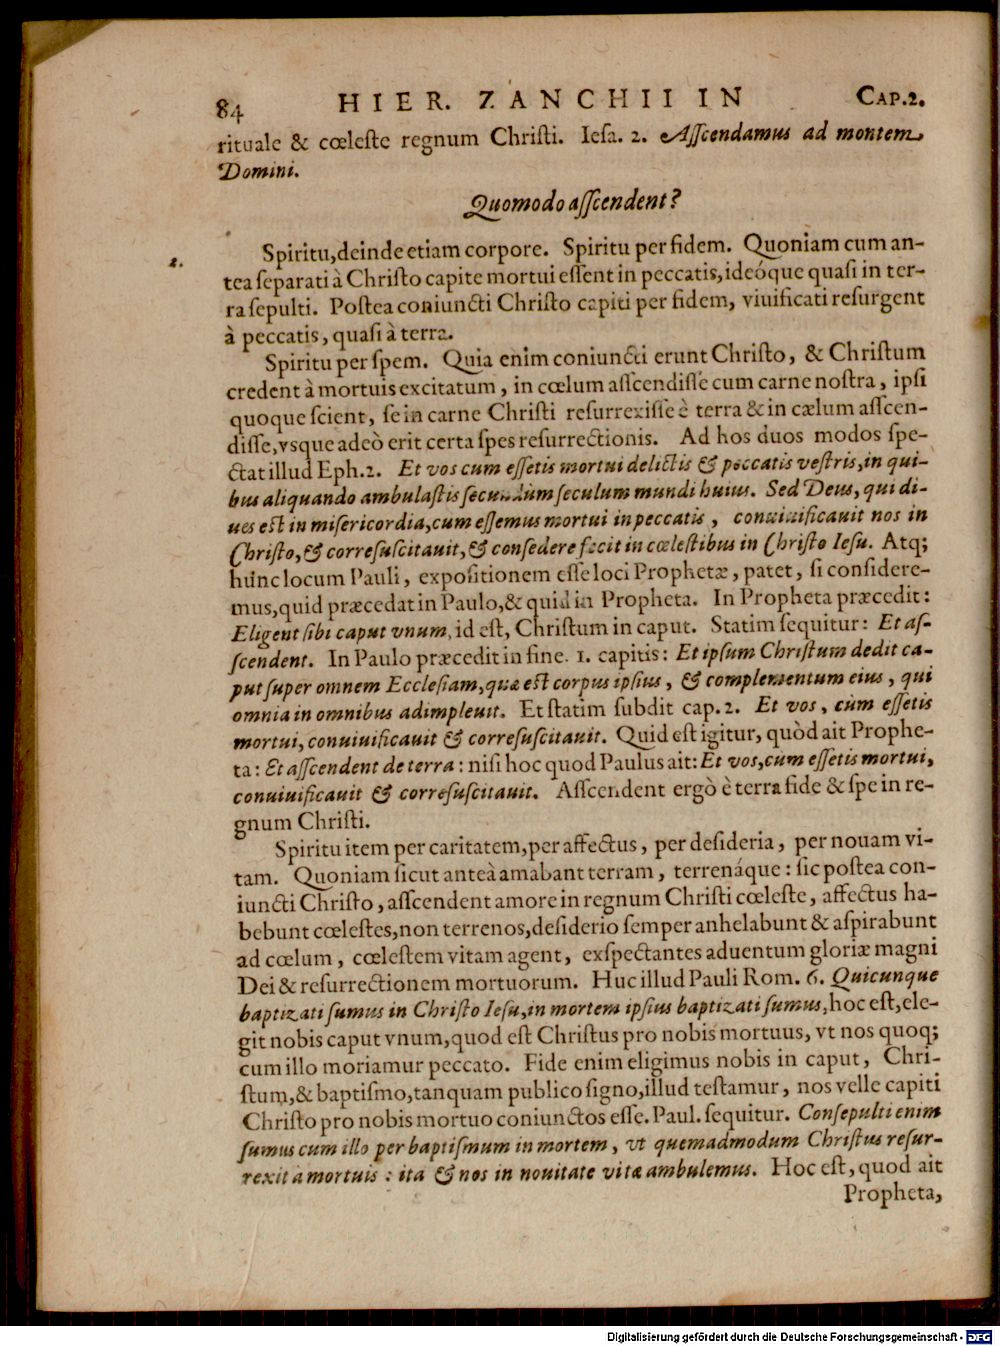 84 HIER. ZANCHII IN CAP.2.
rituale & cœleste regnum Christi. Iesa. 2. Asscendamus ad montem
Domini.
Quomodo asscendent?
2. Spiritu, deinde etiam corpore. Spiritu per fidem. Quoniam cum an-
tea separati à Christo capite mortui essent in peccatis, ideóque quasi in ter-
ra sepulti. Postea coniuncti Christo capiti per fidem, viuificati resurgent
à peccatis, quasi à terra.
Spiritu per spem. Quia enim coniuncti erunt Christo, & Christum
credent à mortuis excitatum, in cœlum asscendisse cum carne nostra, ipsi
quoque scient, se in carne Christi resurrexisse è terra & in cælum asscen-
disse, vsque adeò erit certa spes resurrectionis. Ad hos duos modos spe-
ctat illud Eph.2. Et vos cum essetis mortui delictis & peccatis vestris, in qui-
bus aliquando ambulastis secundum seculum mundi huius. Sed Deus, qui di-
ues est in misericordia, cum essemus mortui in peccatis, conuiuificauit nos in
Christo, & corresuscitauit, & consedere fecit in cœlestibus in Christo Iesu. Atq;
hunc locum Pauli, expositionem esse loci Prophetæ, patet, si considere-
mus, quid præcedat in Paulo, & quid in Propheta. In Propheta præcedit:
Eligent sibi caput vnum, id est, Christum in caput. Statim sequitur: Et as-
scendent. In Paulo præcedit in fine. 1. capitis: Et ipsum Christum dedit ca-
put super omnem Ecclesiam, quæ est corpus ipsius, & complementum eius, qui
omnia in omnibus adimpleuit. Et statim subdit cap.2. Et vos, cùm essetis
mortui, conuiuificauit & corresuscitauit. Quid est igitur, quòd ait Prophe-
ta: Et asscendent de terra: nisi hoc quod Paulus ait: Et vos, cùm essetis mortui,
conuiuificauit & corresuscitauit. Asscendent ergò è terra fide & spe in re-
gnum Christi.
Spiritu item per caritatem, per affectus, per desideria, per nouam vi-
tam. Quoniam sicut anteà amabant terram, terrenáque: sic postea con-
iuncti Christo, asscendent amore in regnum Christi cœleste, affectus ha-
bebunt cœlestes, non terrenos, desiderio semper anhelabunt & aspirabunt
ad cœlum, cœlestem vitam agent, exspectantes aduentum gloriæ magni
Dei & resurrectionem mortuorum. Huc illud Pauli Rom. 6. Quicunque
baptizati sumus in Christo Iesu, in mortem ipsius baptizati sumus, hoc est, ele-
git nobis caput vnum, quod est Christus pro nobis mortuus, vt nos quoq;
cum illo moriamur peccato. Fide enim eligimus nobis in caput, Chri-
stum, & baptismo, tanquam publico signo, illud testamur, nos velle capiti
Christo pro nobis mortuo coniunctos esse. Paul. sequitur. Consepulti enim
sumus cum illo per baptismum in mortem, vt quemadmodum Christus resur-
rexit a mortuis: ita & nos in nouitate vitæ ambulemus. Hoc est, quod ait
Propheta,
Digitalisierung gefördert durch die Deutsche Forschungsgemeinschaft - DFG